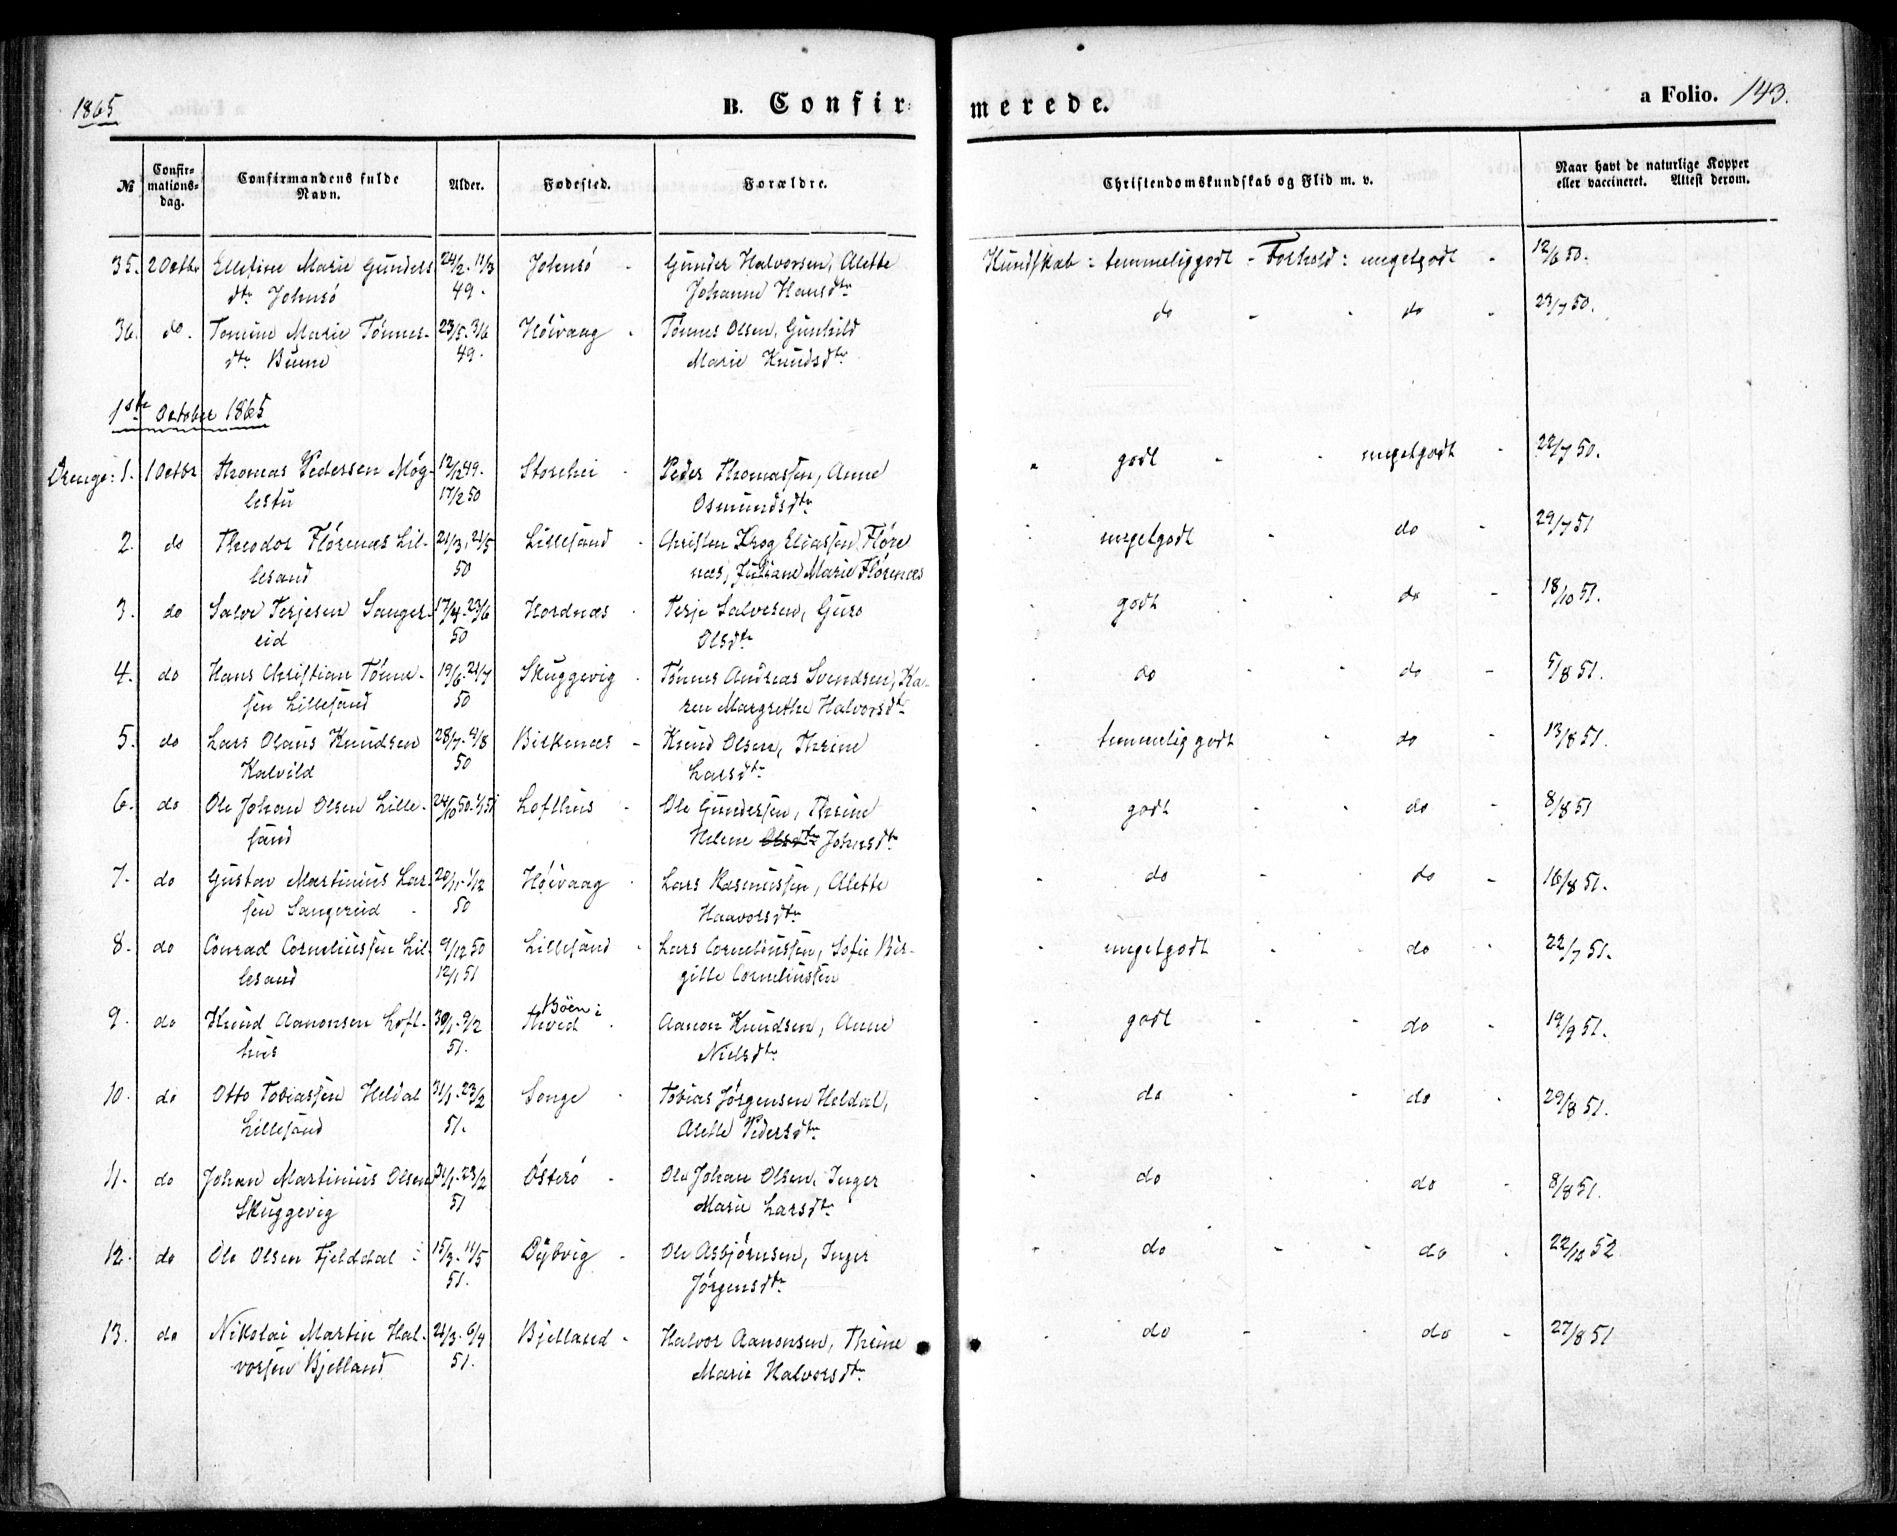 1865
B. Confir-
merede.
a Folio. 143.
№
Confir-
mations-
dag.
Confirmandens fulde
Navn.
Alder.
Fødested.
Forældre.
Christendomskundskab og Flid m. v.
Naar havt de naturlige Kopper
eller vaccineret. Attest derom.
35. 2 Octbr Ellefine Marie Gunders 24/2-11/3 Johnsø - Gunder Halvorsen, Alette Kundskab: temmeliggodt - Forhold: megetgodt - 12/6 50.
dtr Johnsø 49. Johanne Hansdtr
36. do. Tomine Marie Tønnes- 23/5-3/6 Høivaag - Tønnes Olsen, Gunhild do - - do - 23/7 50.
dtr Buene 49. Marie Knudsdtr
1ste October 1865
Drenge: 1. 1 Octbr Thomas Pedersen Møg- 12/2 49. Storehei - Peder Thomassen, Anne godt - - megetgodt - 22/7 50.
lestu 17/2 50 Osmundsdtr
2. do Theodor Flørenæs Lil- 21/3, 21/5 Lillesand - Christen Krog Eliassen Fløre megetgodt - do - 29/7 51
lesand 50 næs, Juliane Marie Flørenæs
3. do Salve Terjesen Sanger- 17/4-23/6 Hordnæs - Terje Salvesen, Guro godt - - do - 18/10 51.
eid 50 Olsdtr
4. do Hans Christian Tønne- 19/6-21/7 Skuggevig - Tønnes Andreas Svendsen, Ka- do - - do - 5/8 51.
sen Lillesand 50 ren Margrethe Halvorsdtr
5. do Lars Olaus Knudsen 28/7-4/8 Birkenæs - Knud Olsen, Thrine temmelig godt - do - 13/8 51.
Kalvild 50 Larsdtr
6. do Ole Johan Olsen Lille- 24/10 50. 1/1 51 Lofthus - Ole Gundersen, Thrine godt - - do - 8/8 51
sand Helene Olsdtr Johnsdtr
7. do Gustav Martinius Lar- 20/11-1/12 Høivaag - Lars Rasmussen, Alette do - do - 16/8 51.
sen Sangereid - 50 Haavorsdtr
8. do Conrad Corneliussen Lil- 9/12 50 Lillesand - Lars Corneliussen, Sofie Bir- megetgodt - - do - 22/7 51.
lesand 12/1 51 gitte Corneliussen
Böen i
9. do Knud Aanonsen Loft- 30/1-9/2 Tveid - Aanon Knudsen, Anne godt - - do - 19/9 51.
hus 51. Nielsdtr
10. do Otto Tobiassen Heldal 31/1-23/2 Songe - Tobias Jørgensen Heldal, do - - do - 29/8 51.
Lillesand 51. Alette Pedersdtr
11. do Johan Martinius Olsen 31/1-23/2 Østerø - Ole Johan Olsen, Inger do - - do - 8/8 51.
Skuggevig 51 Marie Larsdtr
12. do Ole Olsen Fjelddal - 15/3-11/5 Dybvig - Ole Asbjørnsen, Inger do - - do - 22/12 52
51. Jørgensdtr
13. do Nikolai Martin Hal- 21/3-6/4 Bjelland - Halvor Aanonsen, Thrine do - - do - 27/8 51
vorsen Bjelland 51. Marie Halvorsdtr